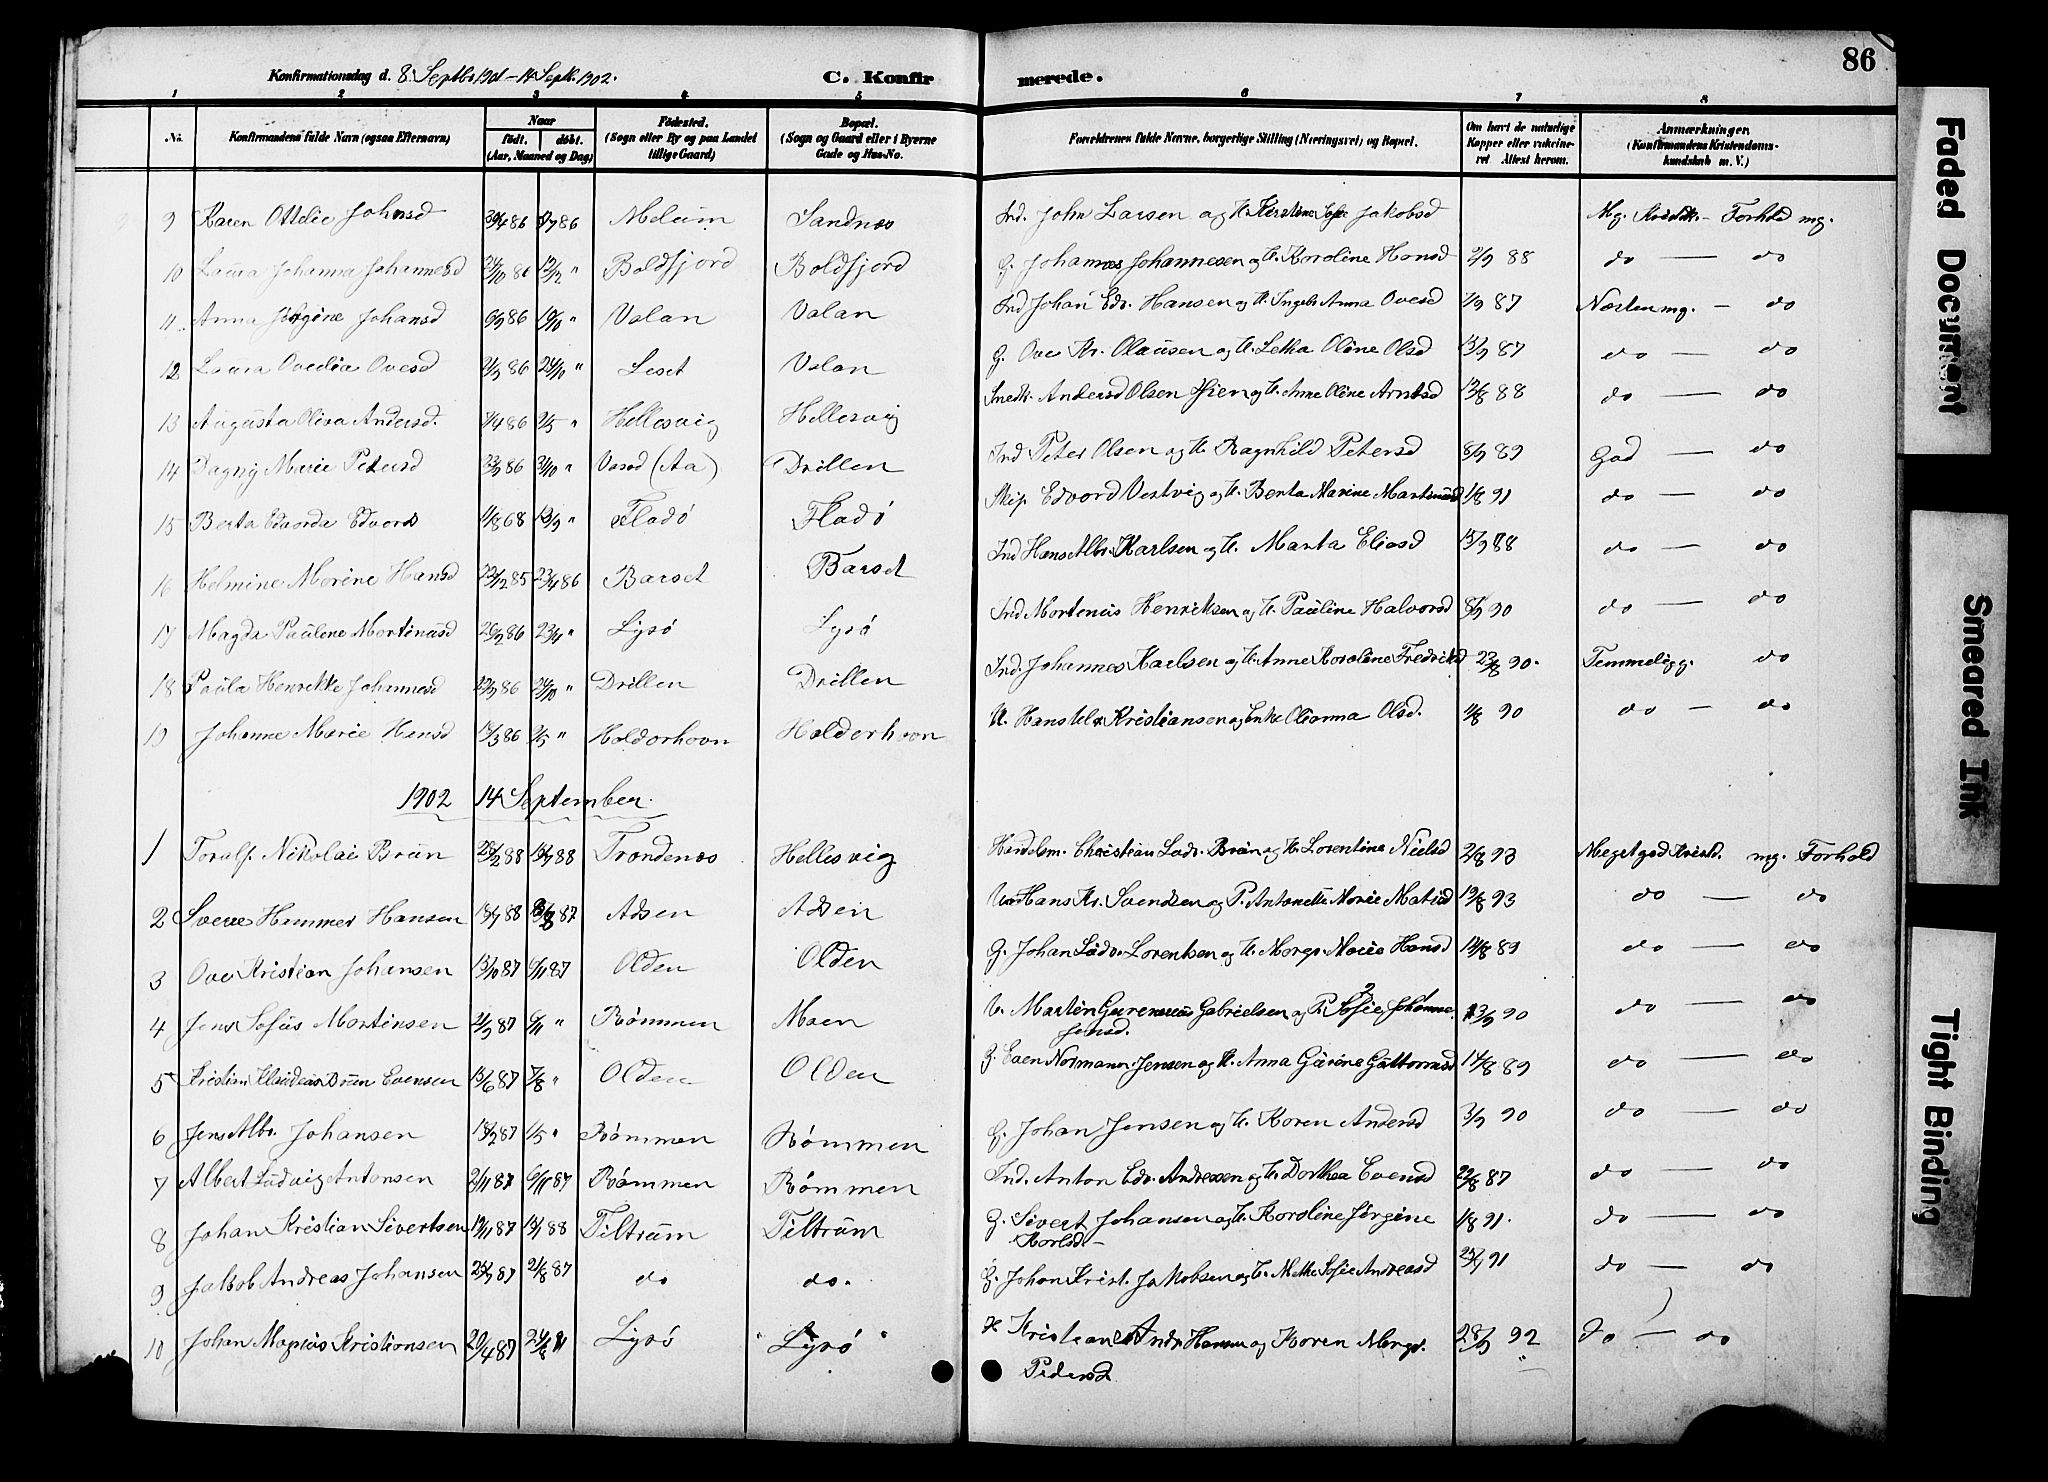 86
Konfirmationsdag d. 8. Septbr 1901 – 14 Septb. 1902.
C. Konfirmerede.
1 2 3 4 5 6 7 8
No. Konfirmandens fulde Navn (ogsaa Efternavn) Naar født. døbt. (Aar, Maaned og Dag) Fødested. (Sogn eller By og paa Landet tillige Gaard) Bopæl. (Sogn og Gaard eller i Byerne Gade og Hus-No. Forældrenes fulde Navne, borgerlige Stilling (Næringsvei) og Bopæl. Om havt de naturlige Kopper eller vakcineret Attest herom. Anmærkninger. (Konfirmandens Kristendomskundskab m. V.)
9 Karen Ottelie Johnsd Melum Sandnes Ind. John Larsen og H. Kirstine Sofie Jakobsd Mg. Kristdk. – Forhold mg.
10 Laura Johanna Johannesd 12/12 " Boldfjord Boldfjord G. Johannes Johannesen og H. Karoline Hansd 2/9 88 do — do
11 Anna Jørgine Johansd 6/9 86 10/10 " Valan Valan Ind Johan Edv. Hansen og H. Ingeb. Anna Ovesd 7/9 87 Næsten mg. – do
12 Laura Ovedia Ovesd 2/9 86 24/10 " Seset Valan G. Ove Kr. Olausen og H. Letha Oline Olsd 13/9 87 do — do
13 Augusta Oliva Andersd. 1/4 86 2/5 " Hellesvig Hellesvig Snedk. Anders Olsen og H. Anne Oline Arntsd 12/8 88 do — do
14 Dagny Marie Petersd 23/9 86 31/10 " Vasod (Aa) Drillen Ind Peter Olsen og H. Ragnhild Petersd 8/9 89 God — do
15 Berta Edvarda Edvards 11/8 68 13/9 " Fladø Fladø Skip. Edvard Vestvig og H. Berta Marine Martinusd 1/8 91 do — do
16 Helmine Marine Hansd 22/12 85 23/4 86 Barset Barset Ind Hans Alb. Karlsen og H. Marta Eliasd 15/9 88 do — do
17 Magda Pauline Mortinusd 26/9 86 23/11 " Lysø Lysø Ind. Mortenus Henriksen og H. Pauline Halvorsd 8/9 90 do — do
18 Paula Henrikke Johannesd 22/9 86 24/10 " Drillen Drillen Ind. Johannes Karlsen og H. Anne Karoline Fredriksd 23/8 90. Temmelig g. do
19 Johanne Marie Hansd 14/3 86 2/5 " Haldorhavn Haldorhavn U. Hans Kristiansen og Enke Olianna Olsd. 1/8 90 do — do
1902 14 September.
1 Toralf Nikolai Brun 28/2 88 15/7 88 Trondenes Hellesvig Handelsm. Christian Ludv. Brun og H. Lorentine Nielsd 2/8 93 Meget god Kristd. mg. Forhold
2 Sverre Hammer Hansen Adsen Adsen Hans Kr. Svendsen og P. Antonette Marie Matisd 19/8 93 do — do
3 Ove Kristian Johansen 13/10 87 6/11 87 Olden Olden G. Johan Ludv. Lorentsen og H. Marg. Marie Hansd 14/8 89 do — do
4 Jens Sofus Mortensen 21/9 87 6/11 " Rømmen Moen U. Martin Gabrielsen og P. Sofie Johanna Jensd. 13/9 90 do — do
5 Kristian Klaudius Brun Evensen 13/6 87 7/8 " Olden Olden G. Even Normann Jensen og H. Anna Gurine Guttormsd 14/8 89 do — do
6 Jens Alb. Johansen 18/2 87 1/5 " Rømmen Rømmen G. Johan Jensen og H. Karen Andersd 3/9 90 do — do
7 Albert Ludvig Antonsen 2/11 87 6/11 87 Rømmen Rømmen Ind. Anton Edv. Andreasen og H. Dorthea Evensd 22/8 87 do — do
8 Johan Kristian Sivertsen 19/11 87 15/1 88 Tiltrum Tiltrum G. Sivert Johansen og H. Karoline Jørgine Karlsd 1/8 91. do — do
9 Jakob Andreas Johansen 2/8 87 do do. G. Johan Krist. Jakobsen og H. Mette Sofie Andreasd 25/9 91 do — do
10 Johan Magnus Kristiansen 20/4 87 Lysø " Lysø " Kristian Andr. Hansen og Karen Marg. Pedersd 28/9 92 do — do
Faded Document
Smeared Ink
Tight Binding